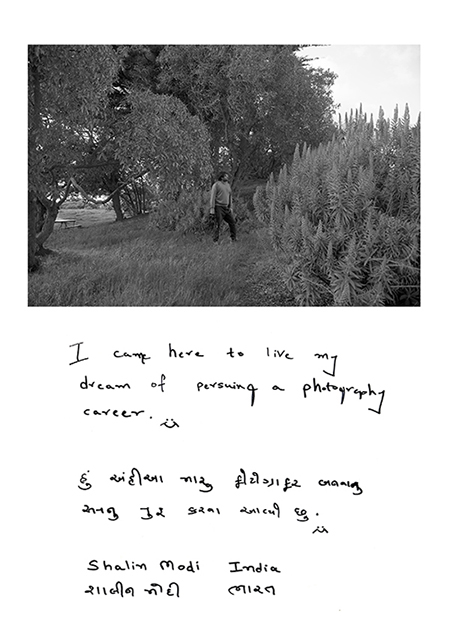 I came here to live my
dream of persuing a photography
career. :)
હું અહીંઆ મારુ ફોટોગ્રાફર બનવાનુ
સપનુ પુરુ કરવા આવ્યો છુ. :)
Shalin Modi India
શાલીન મોદી ભારત